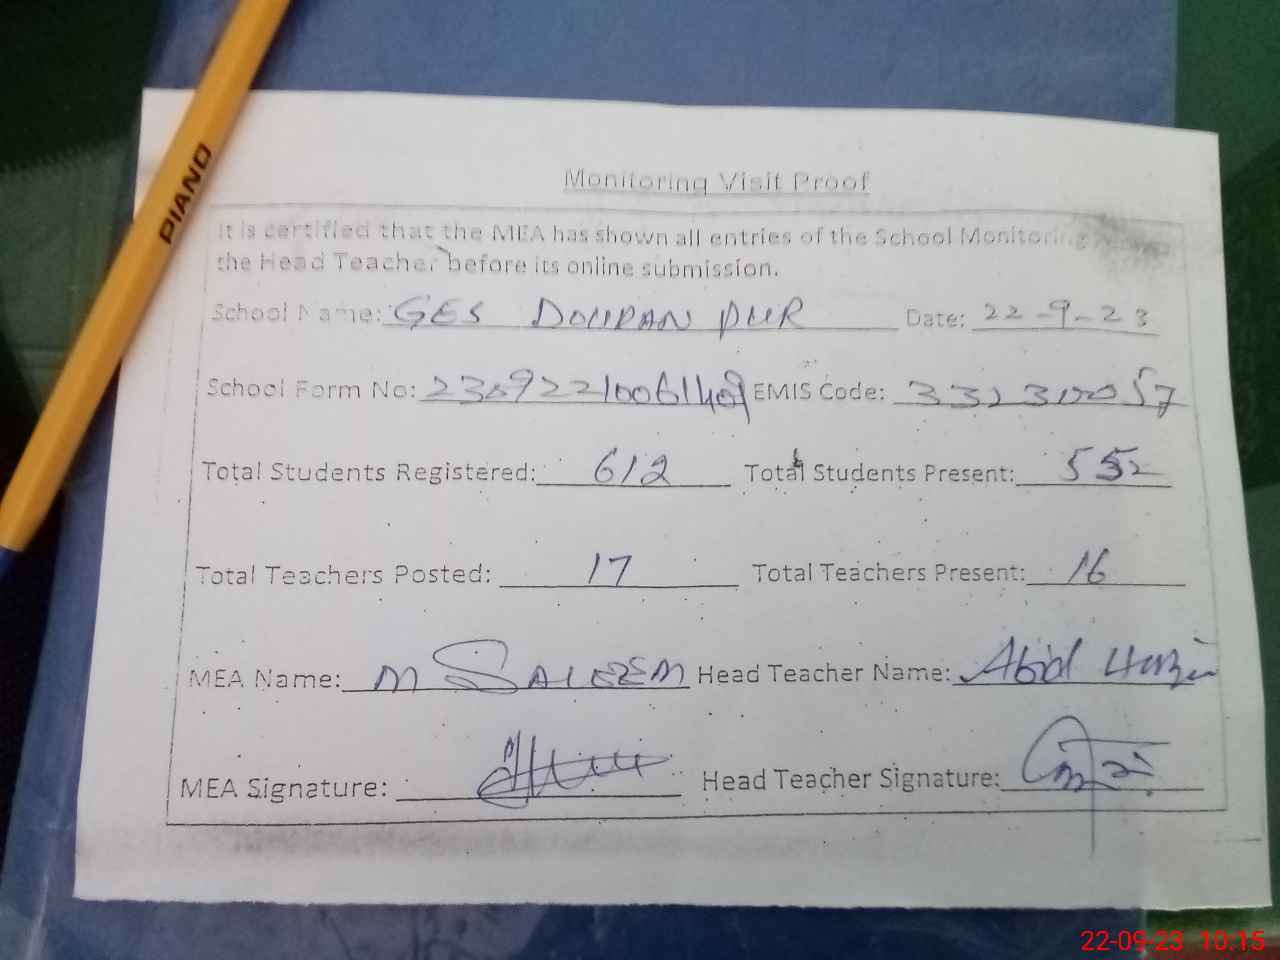 PIANO
Monitoring Visit Proof
It is certified that the MEA has shown all entries of the School Monitoring
the Head Teacher before its online submission.
School Name: GES DOLLPAN PUR Date: 22-9-23
School Form No: EMIS Code:
Total Students Registered: 612 Total Students Present: 552
Total Teachers Posted: 17 Total Teachers Present: 16
MEA Name: M SALEEM Head Teacher Name: Abid
MEA Signature: Head Teacher Signature:
22-09-23 10:15